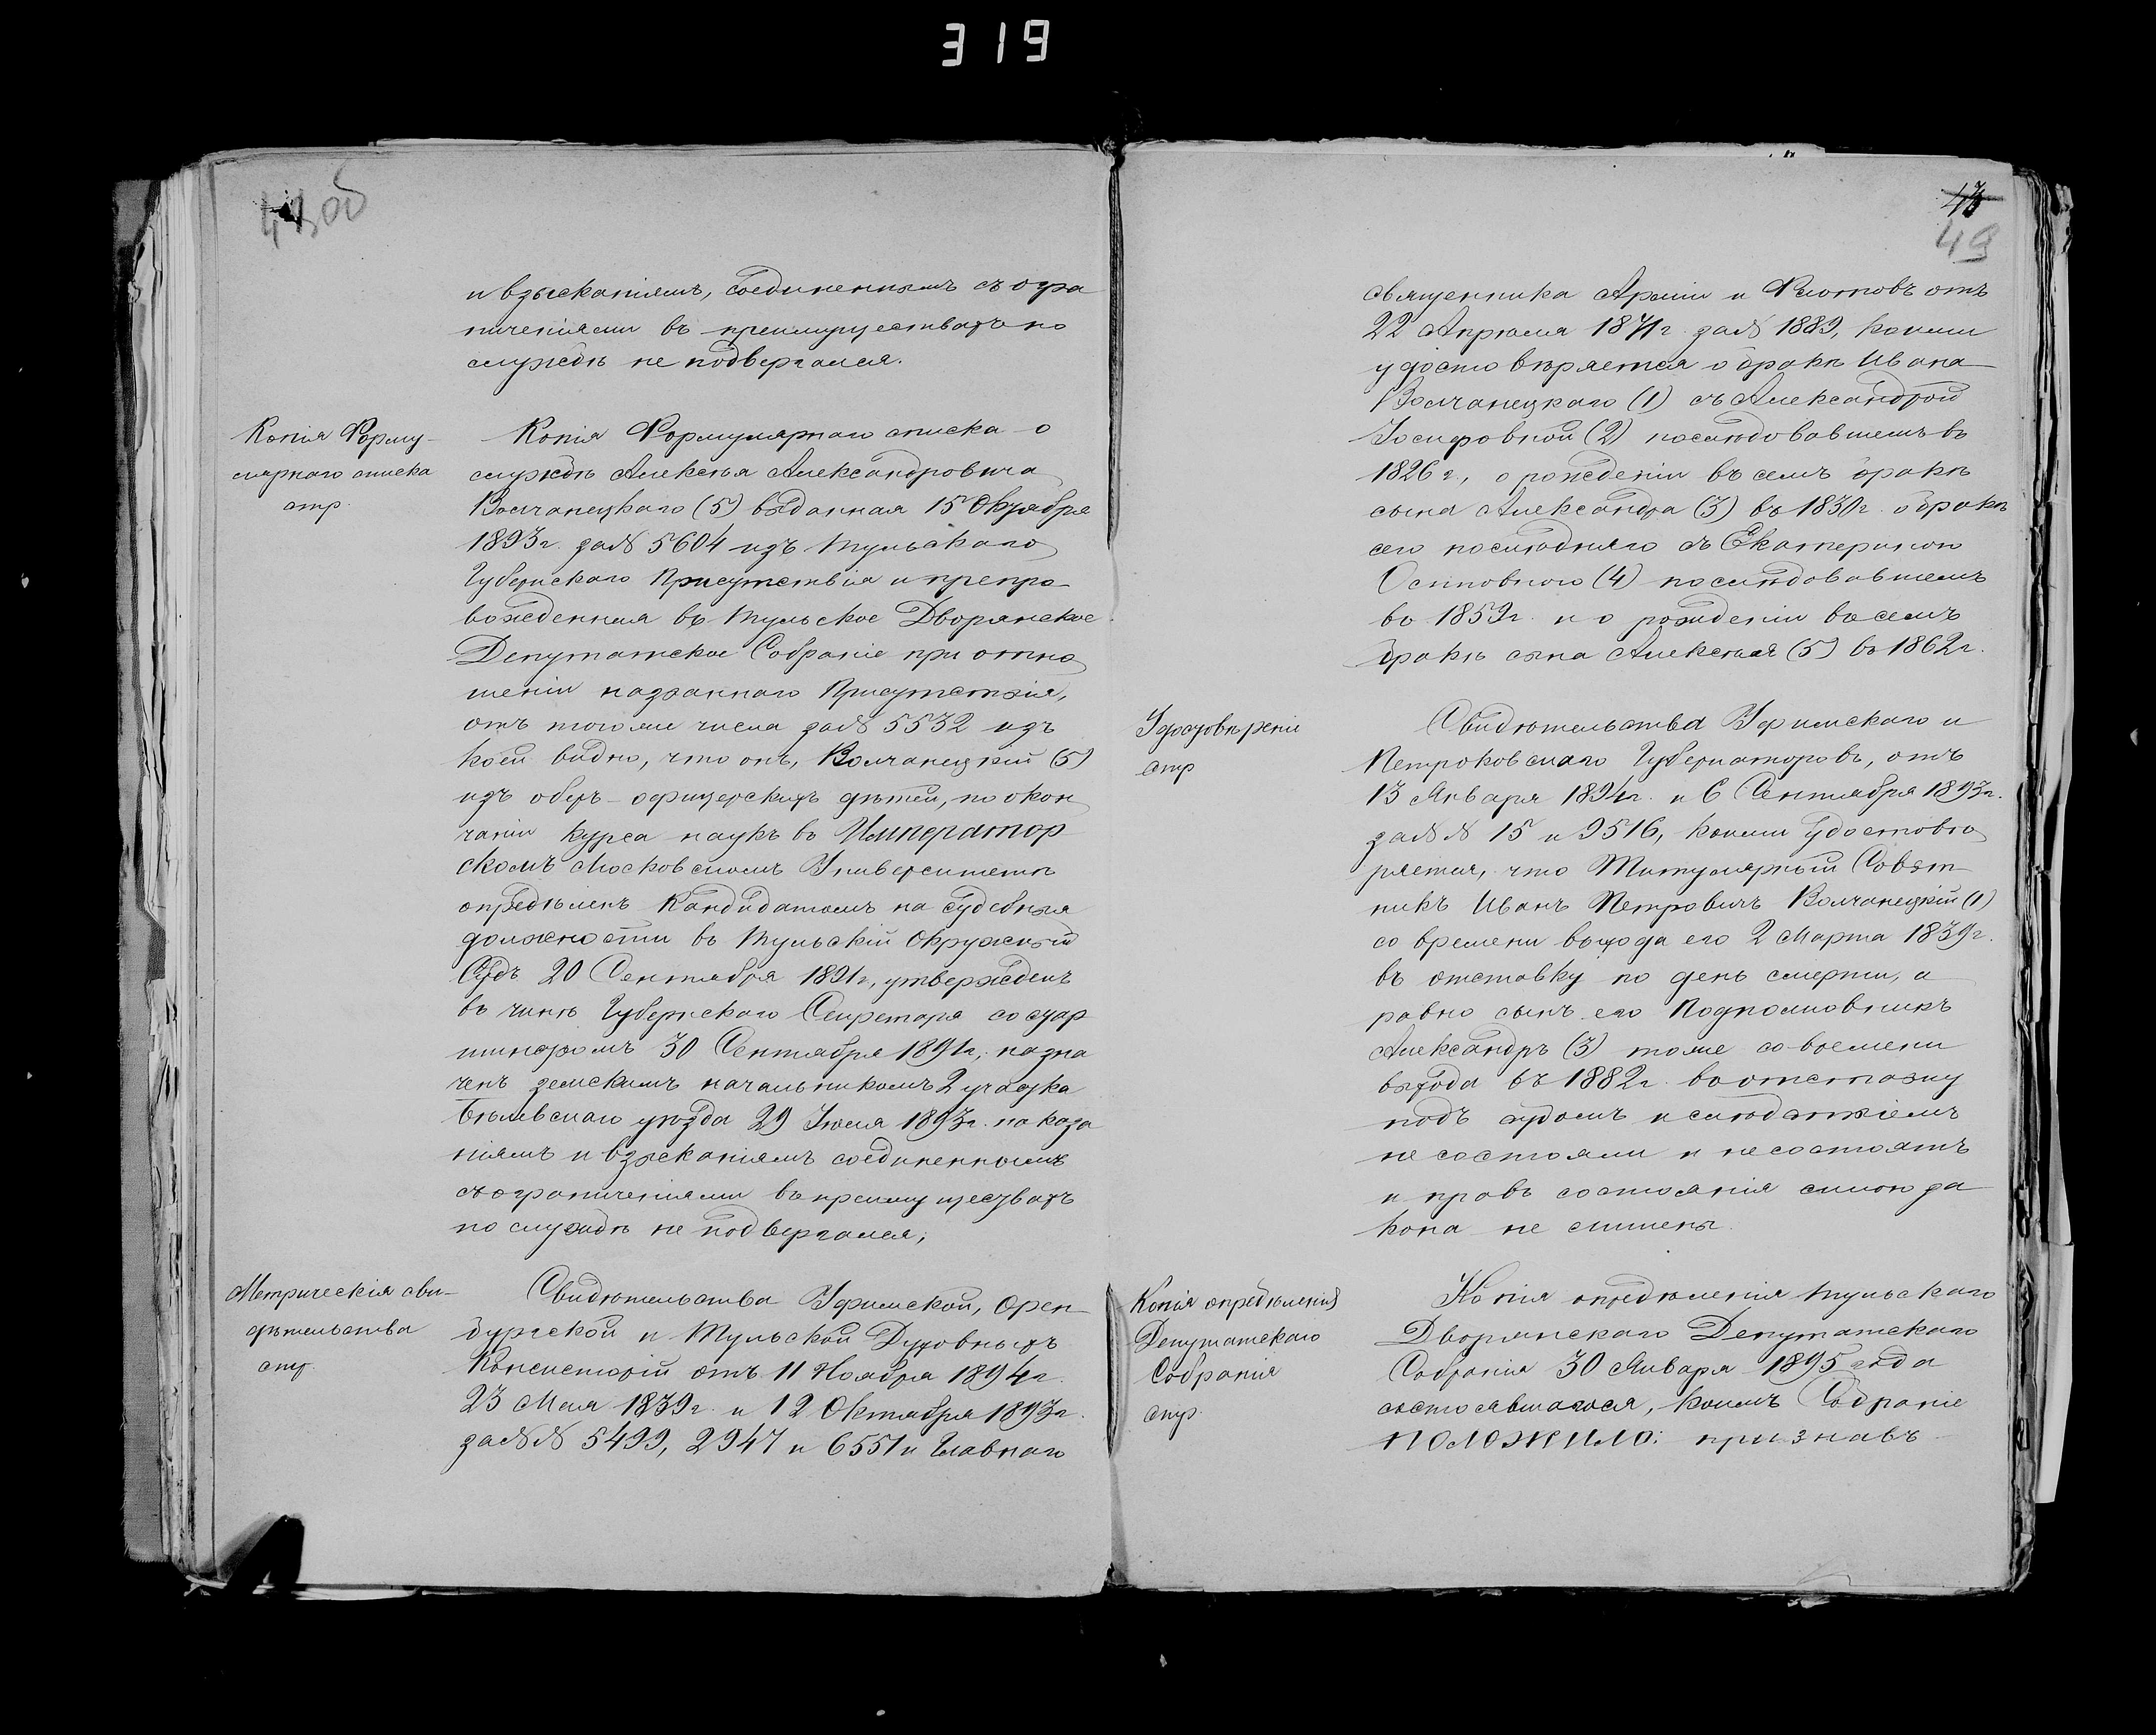 319
и взысканіямъ, соединеннымъ съ огра
ниченіями въ преимуществахъ по
службѣ не подвергался.
Копія Форму-
лярнаго списка
стр.
Копія Формулярнаго списка о
службѣ Алексѣя Александровича
Волчанецкаго (5) выданная 15 Октября
1893 г. за № 5604 изъ Тульскаго
Губернскаго Присутствія и препро-
вожденная въ Тульское Дворянское
Депутатское Собраніе при отно
шеніи названнаго Присутствія,
отъ того же числа за № 5532 изъ
коей видно, что онъ, Волчанецкій (5)
изъ оберъ-офицерскихъ дѣтей, по окон
чаніи курса наукъ въ Император
скомъ Московскомъ Университетѣ
опредѣленъ Кандидатомъ на судебныя
должности въ Тульскій Окружный
Судъ 20 Сентября 1891 г., утвержденъ
въ чинѣ Губернскаго Секретаря со стар
шинствомъ 30 Сентября 1891 г., назна
ченъ земскимъ начальникомъ 2 участка
Бѣлевскаго уѣзда 29 Іюля 1893 г. наказа
ніямъ и взысканіямъ соединеннымъ
съ ограниченіями въ преимуществахъ
по службѣ не подвергался;
Метрическія сви-
дѣтельства
стр.
Свидѣтельства Уфимской, Орен
бургской и Тульской Духовныхъ
Консисторій отъ 11 Ноября 1894 г.
23 Мая 1839 г. и 12 Октября 1893 г.
за №№ 5499, 2947 и 6551 и Главнаго
49
священника Арміи и Флотовъ отъ
22 Апрѣля 1871 г. за № 1889, коими
удостовѣряется о бракѣ Ивана
Волчанецкаго (1) съ Александрой
Іосифовной (2) послѣдовавшемъ въ
1826 г., о рожденіи въ семъ бракѣ
сына Александра (3) въ 1830 г. о бракѣ
сего послѣдняго съ Екатериною
Осиповною (4) послѣдовавшемъ
въ 1859 г. и о рожденіи въ семъ
бракѣ сына Алексѣя (5) въ 1862 г.
Удостовѣреніе
стр
Свидѣтельства Уфимскаго и
Петроковскаго Губернаторовъ, отъ
13 Января 1894 г. и 6 Сентября 1893 г.
за №№ 15 и 9516, коими удостовѣ
ряется, что Титулярный Совѣт
никъ Иванъ Петровичъ Волчанецкій (1)
со времени выхода его 2 Марта 1839 г.
въ отставку по день смерти, а
равно сынъ его Подполковникъ
Александръ (3) тоже со времени
выхода въ 1882 г. въ отставку
подъ судомъ и слѣдствіемъ
не состояли и не состоятъ
и правъ состоянія силою за
кона не лишены.
Копія опредѣленія
Депутатскаго
Собранія
стр.
Копія опредѣленія Тульскаго
Дворянскаго Депутатскаго
Собранія 30 Января 1895 года
состоявшагося, коимъ Собраніе
ПОЛОЖИЛО: признавъ